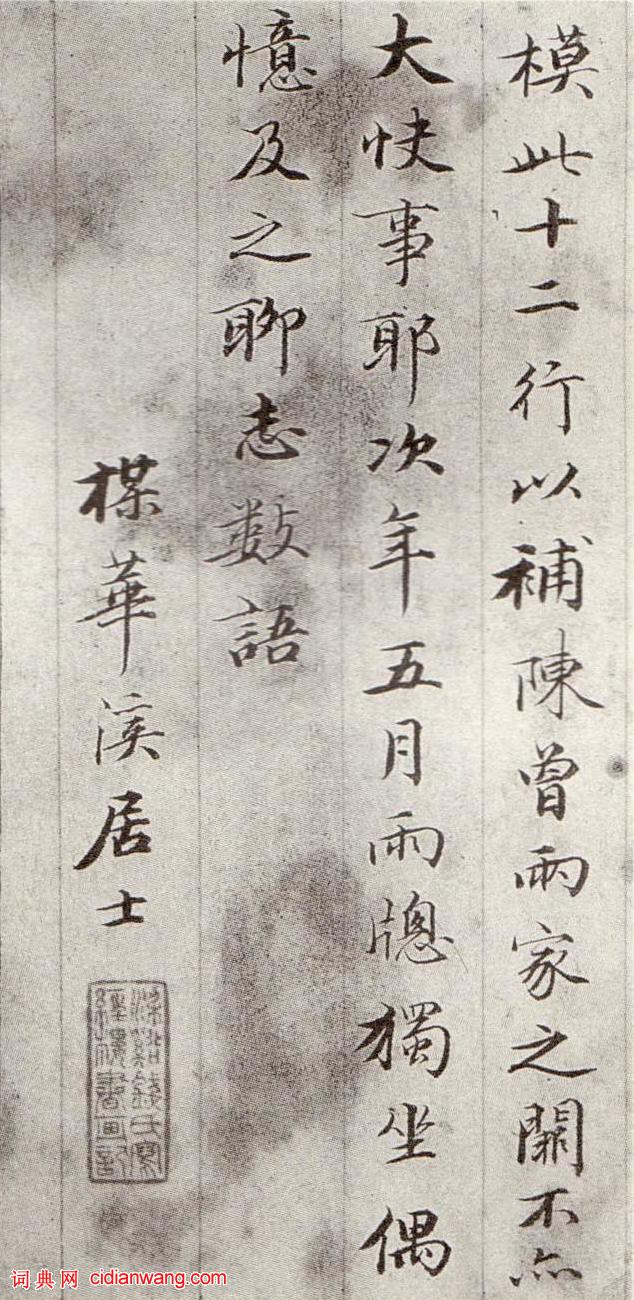 模此十二行以補陳曾兩家之闕不亦
大快事耶次年五月雨牕獨坐偶
憶及之聊志数語
楳華溪居士
词典网 cidianwang.com